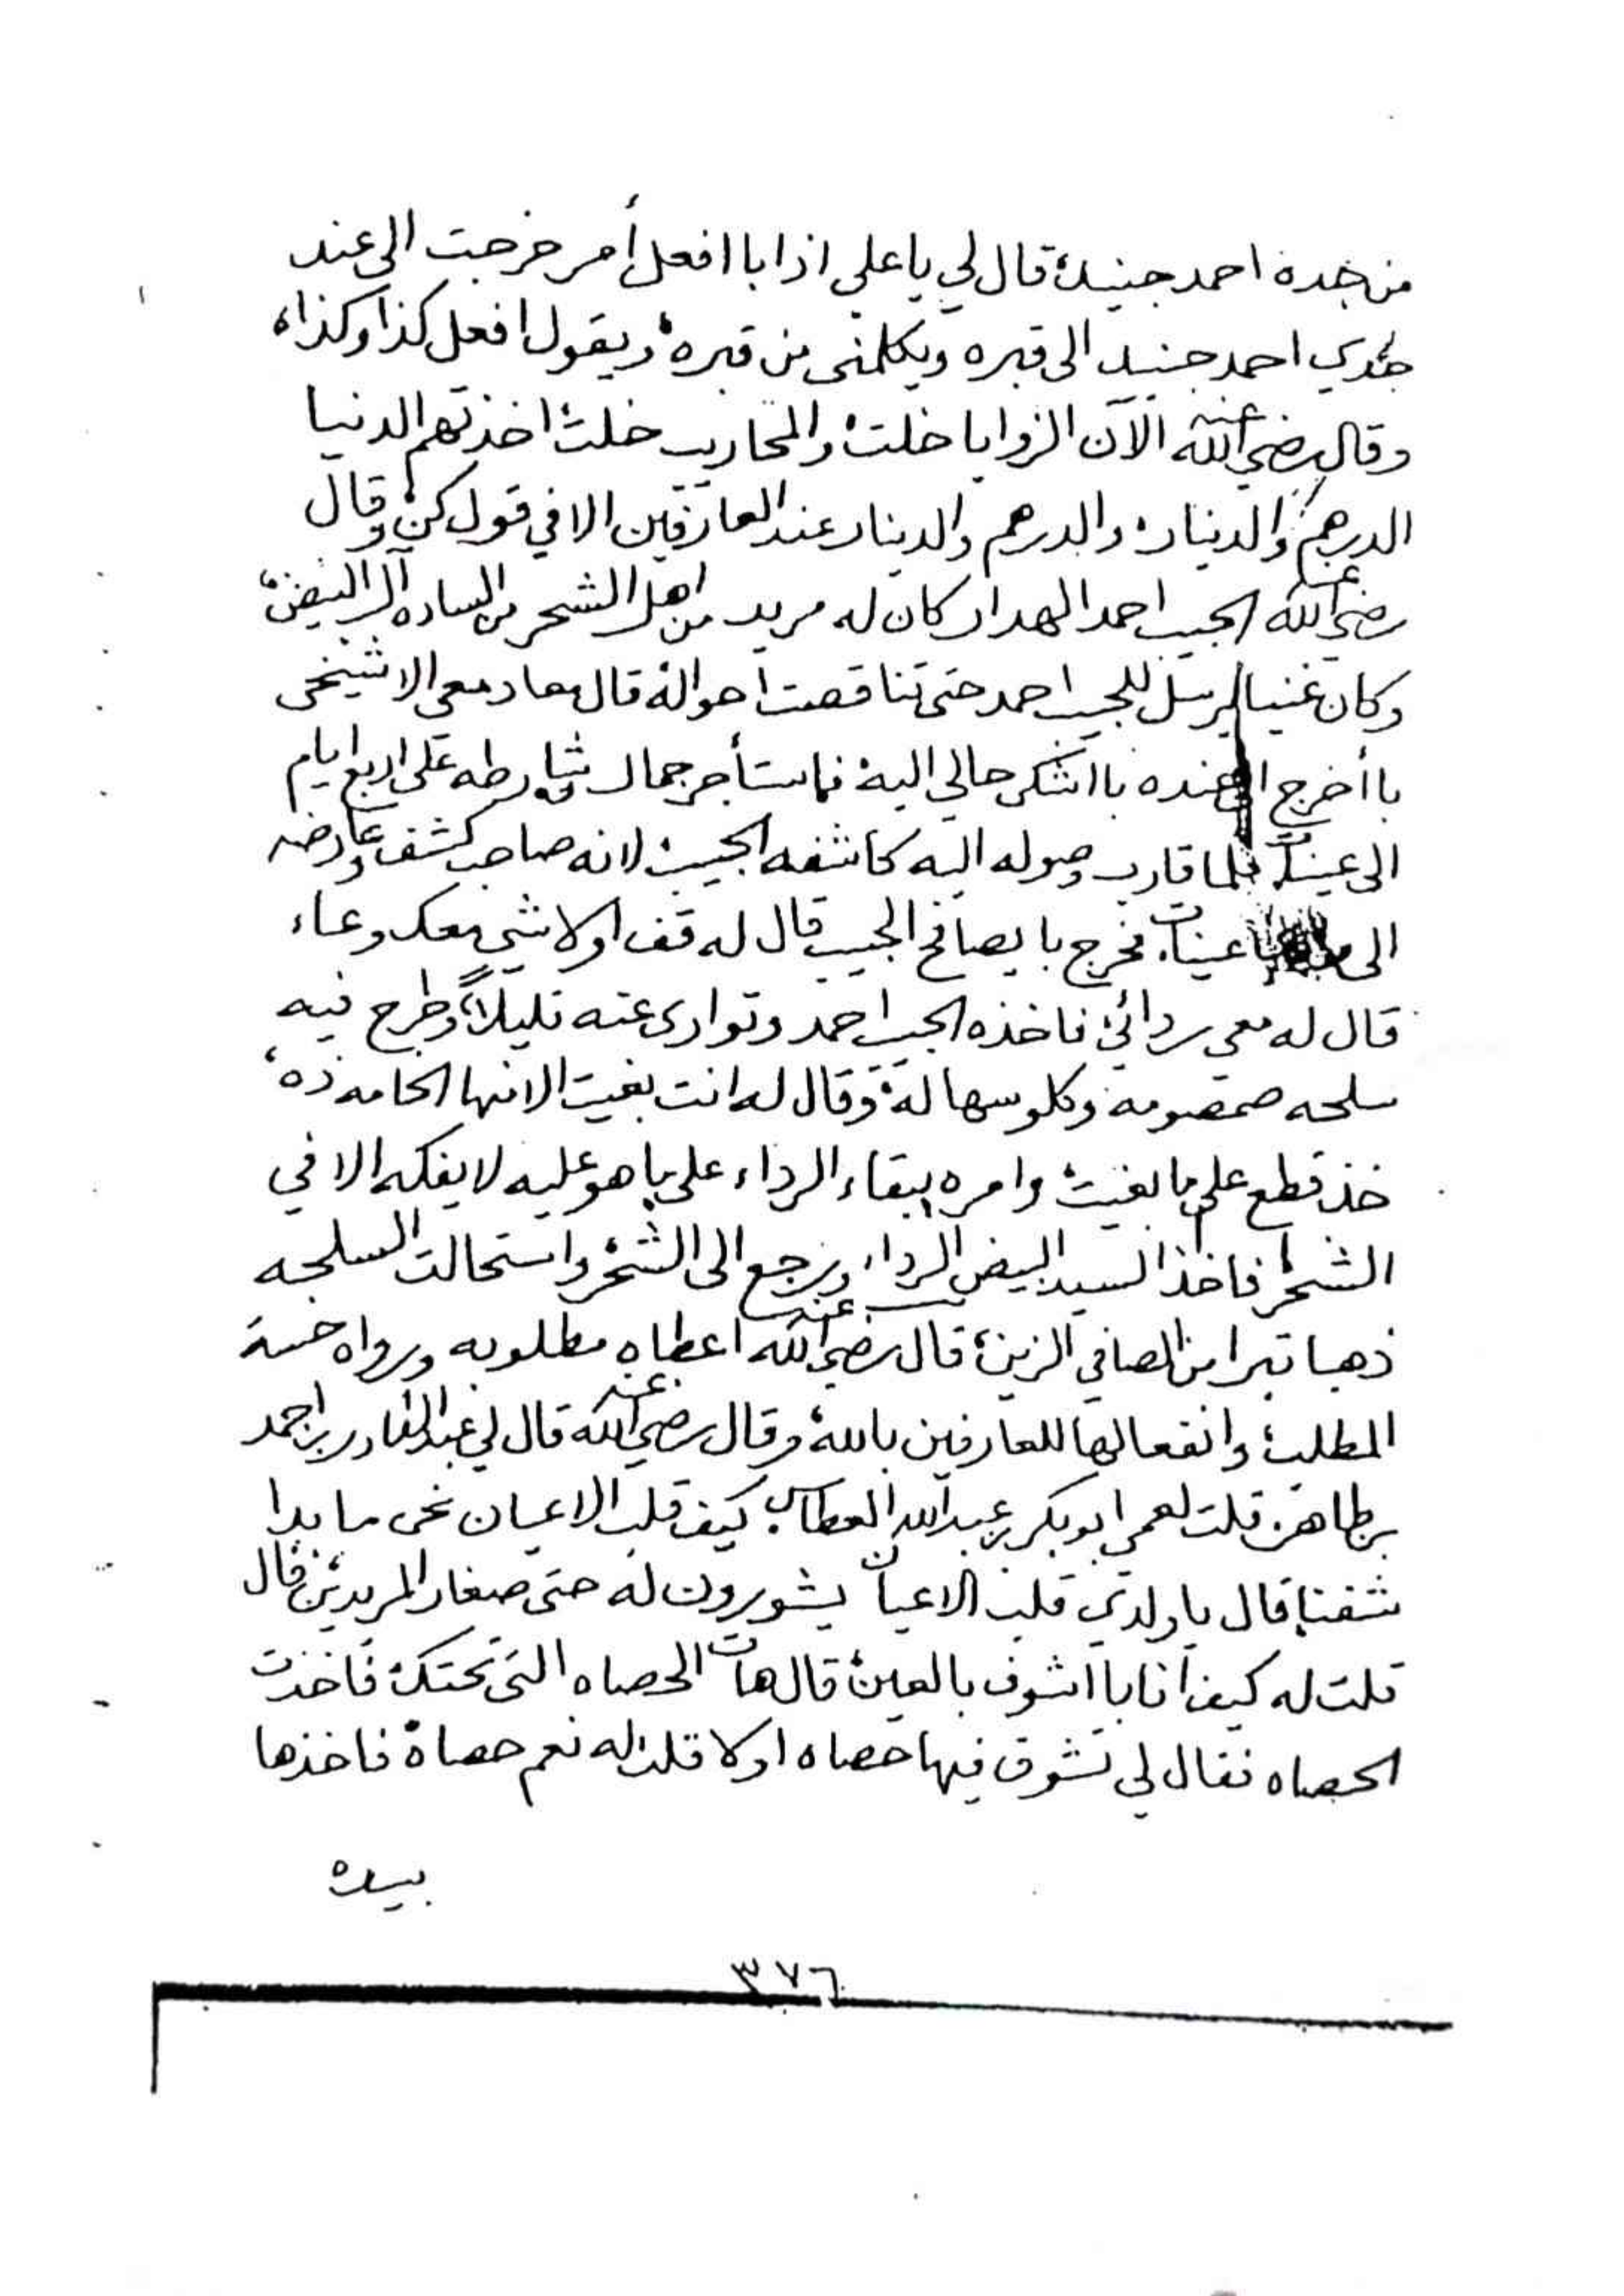 من جده احمد جنيد قال لي يا علي اذا با افعل أمر خرجت الى عند
جدي احمد جنيد الى قبره ويكلمنى من قبره ويقول افعل كذا وكذا،
وقال رضي الله عنه الآن الزوايا خلت والمحاريب خلت اخذتهم الدنيا
الدرهم والدينار والدرهم والدينار عند العارفين الا في قول كن وقال
رضي الله عنه الحبيب احمد الهدار كان له مريد من اهل الشحر من الساده آل البيض،
وكان غنيا يرسل للحبيب احمد حتى تناقصت احواله قال معاد معي الا شيخى
با أخرج الى عنده با اشكى حالي اليه فاستأجر جمال وشارطه على اربع ايام
الى عينات فلما قارب وصوله اليه كاشفه الحبيب لانه صاحب كشف وعارضه
الى عينات فخرج با يصافح الحبيب قال له قف اولا شي معك وعاء
قال له معي ردائي فاخذه الحبيب احمد وتوارى عنه قليلاً وطرح فيه
سلحه وكلوسها له وقال له انت بغيت الا الحامه ذه،
خذ قطع على ما بغيت وامره ببقاء الرداء على ما هو عليه لا يفكه الا في
الشحر فاخذ السيد البيض الرداء ورجع الى الشحر واستحالت السلحه
ذهبا تبرا من الصافي الزين قال رضي الله عنه اعطاه مطلوبه ورواه خسة
المطلب وانفعالها للعارفين بالله وقال رضي الله عنه قال لي عبد القادر بن احمد
بن طاهر قلت لعمي ابوبكر بن عبدالله العطاس كيف قلب الاعيان نحن ما بدا
شفنا قال يا ولدي قلب الاعيان يشورون له حتى صغار المريدين قال
قلت له كيف أنا با اشوف بالعين قال هات الحصاه التى تحتك فاخذت
الحصاه فقال لي تشوف فيها حصاه اولا قلت له نعم حصاة فاخذها
بيده
٣٧٦